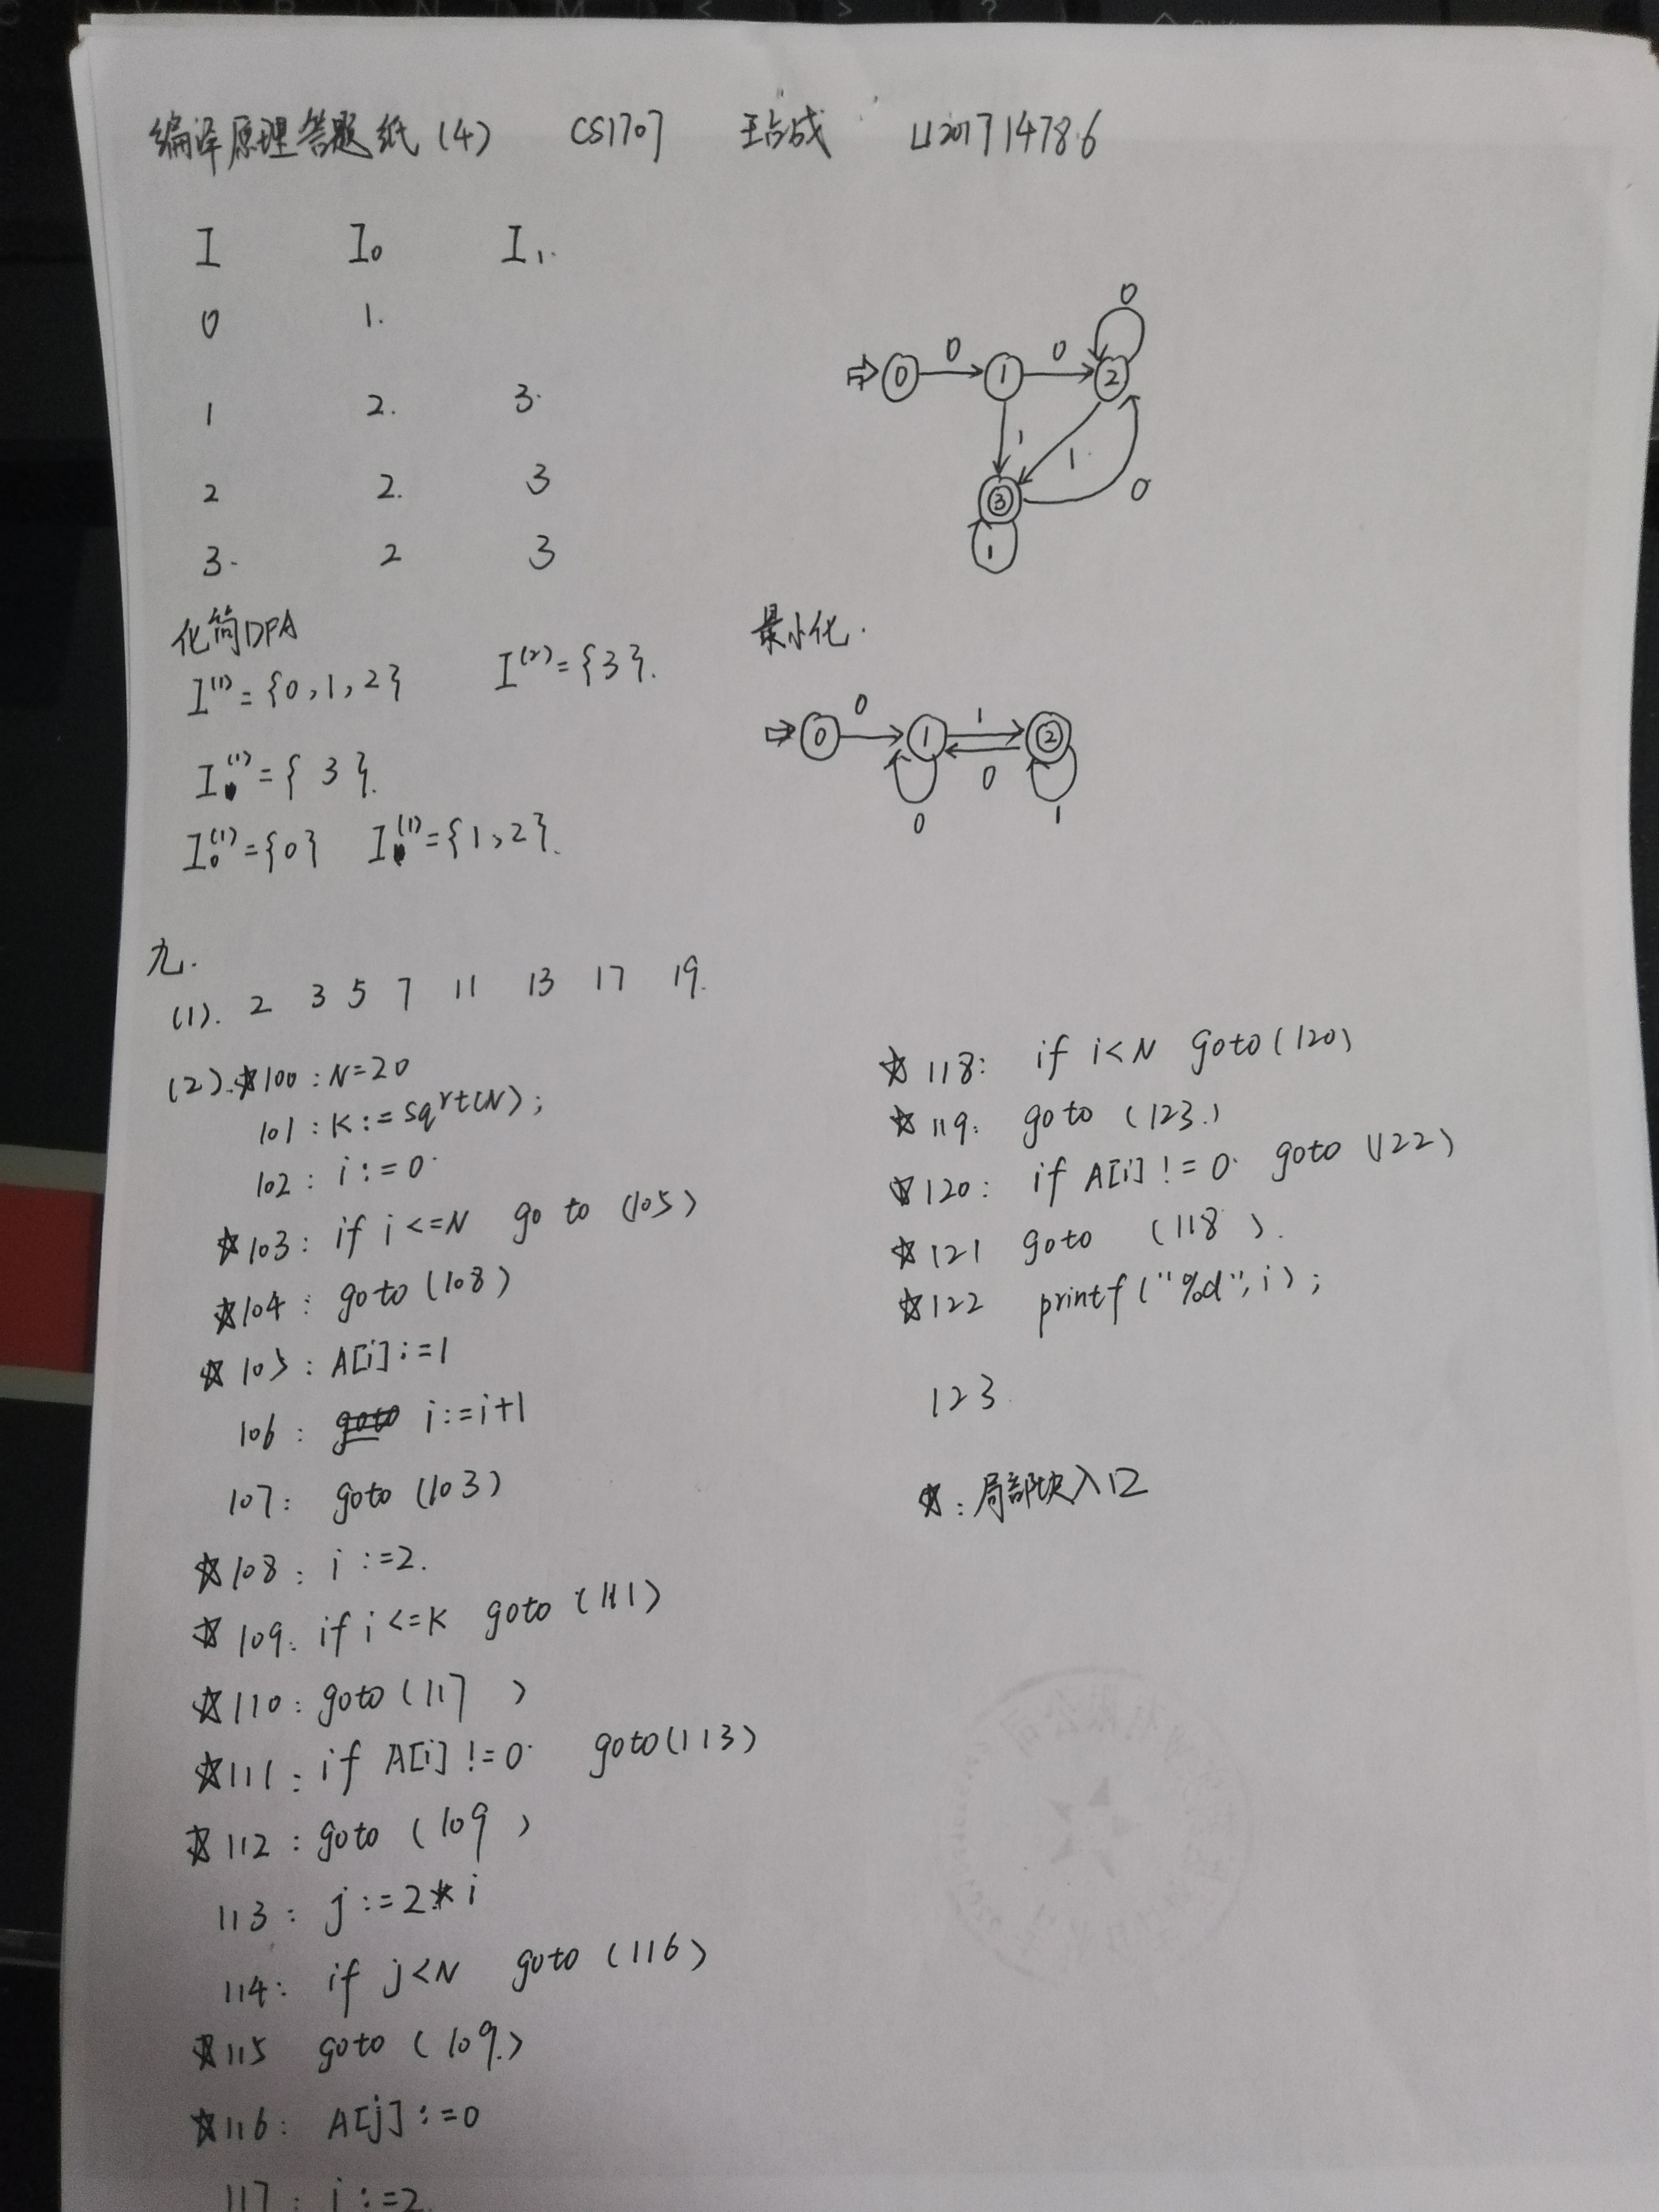 编译原理答题纸(4) CS1707 王占成 U201714786
I I₀ I₁.
0 1.
1 2. 3.
2 2. 3
3. 2 3
0
0 0
0 1 2
1 1
3 0
1
化简DFA
I⁽¹⁾={0,1,2} I⁽²⁾={3}.
I₁⁽¹⁾={ 3 }.
I₀⁽¹⁾={0} I₀⁽¹⁾={1,2}.
最小化.
0 1
0 1 2
0
0 1
九.
(1). 2 3 5 7 11 13 17 19.
(2).☆100 : N=20
101 : K:=sqrt(N);
102 : i:=0
☆103: if i<=N go to (105)
☆104: goto (108)
☆105: A[i]:=1
106: i:=i+1
107: goto (103)
☆108: i:=2.
☆109: if i<=K goto (111)
☆110: goto (117 )
☆111: if A[i]!=0 goto(113)
☆112: goto (109 )
113: j:=2*i
114: if j<N goto (116)
☆115 goto (109.)
☆116: A[j]:=0
117: i:=2.
☆118: if i<N goto(120)
☆119: goto (123.)
☆120: if A[i]!=0 goto (122)
☆121 goto (118 ).
☆122 printf("%d",i);
123.
☆:局部块入口